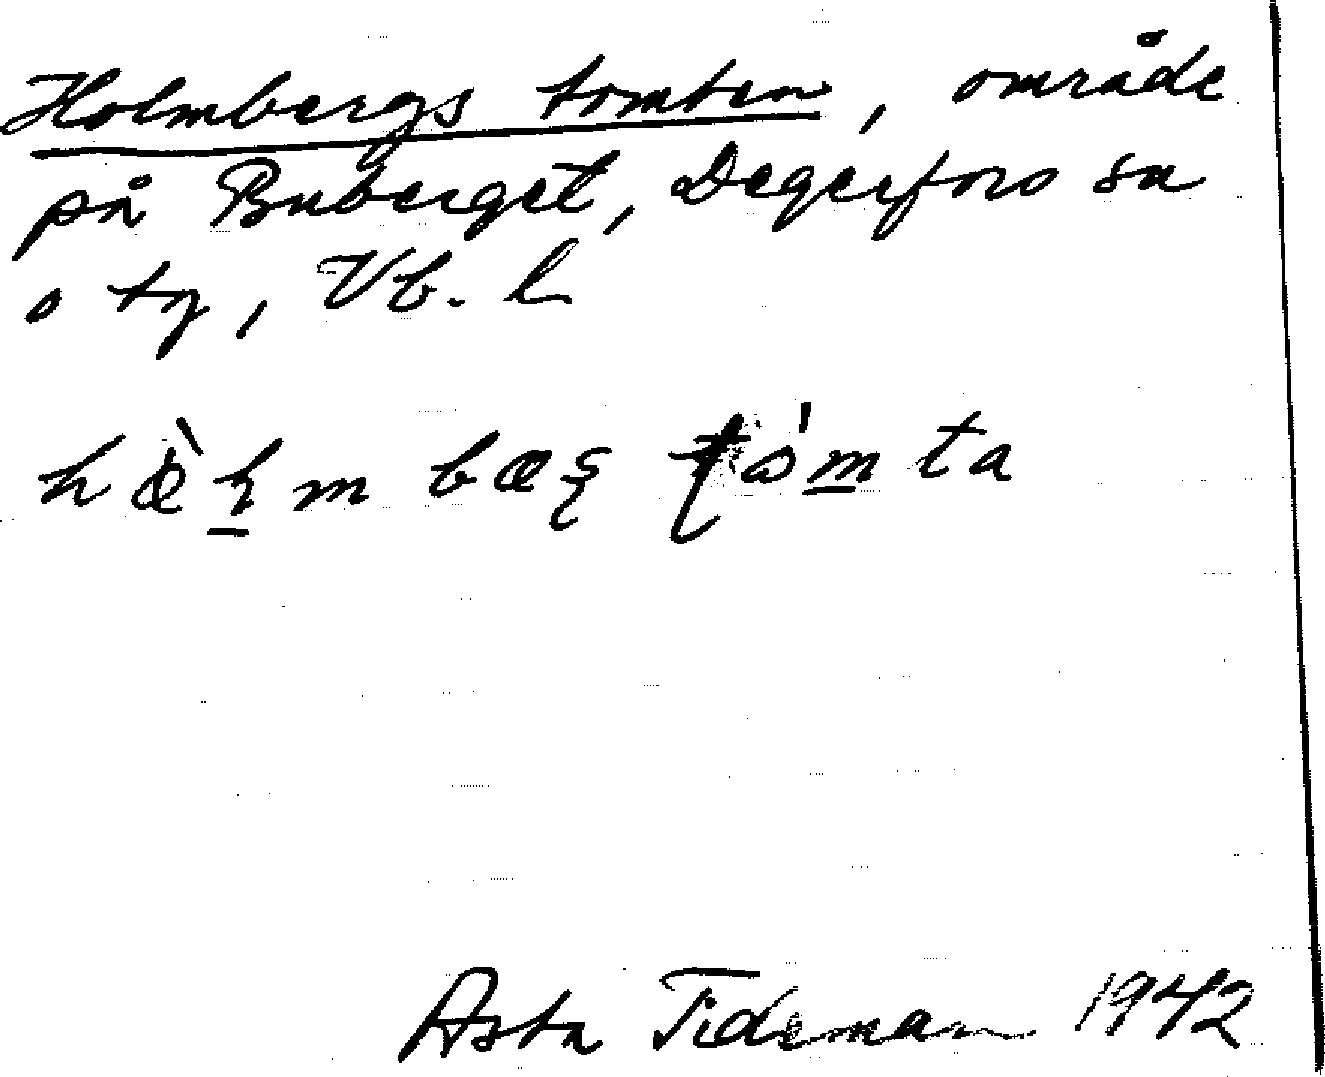 Holmbergs tomten, område
på Buberget, Degerfors sn
o tg, Vb. l
Asta Tideman 1942